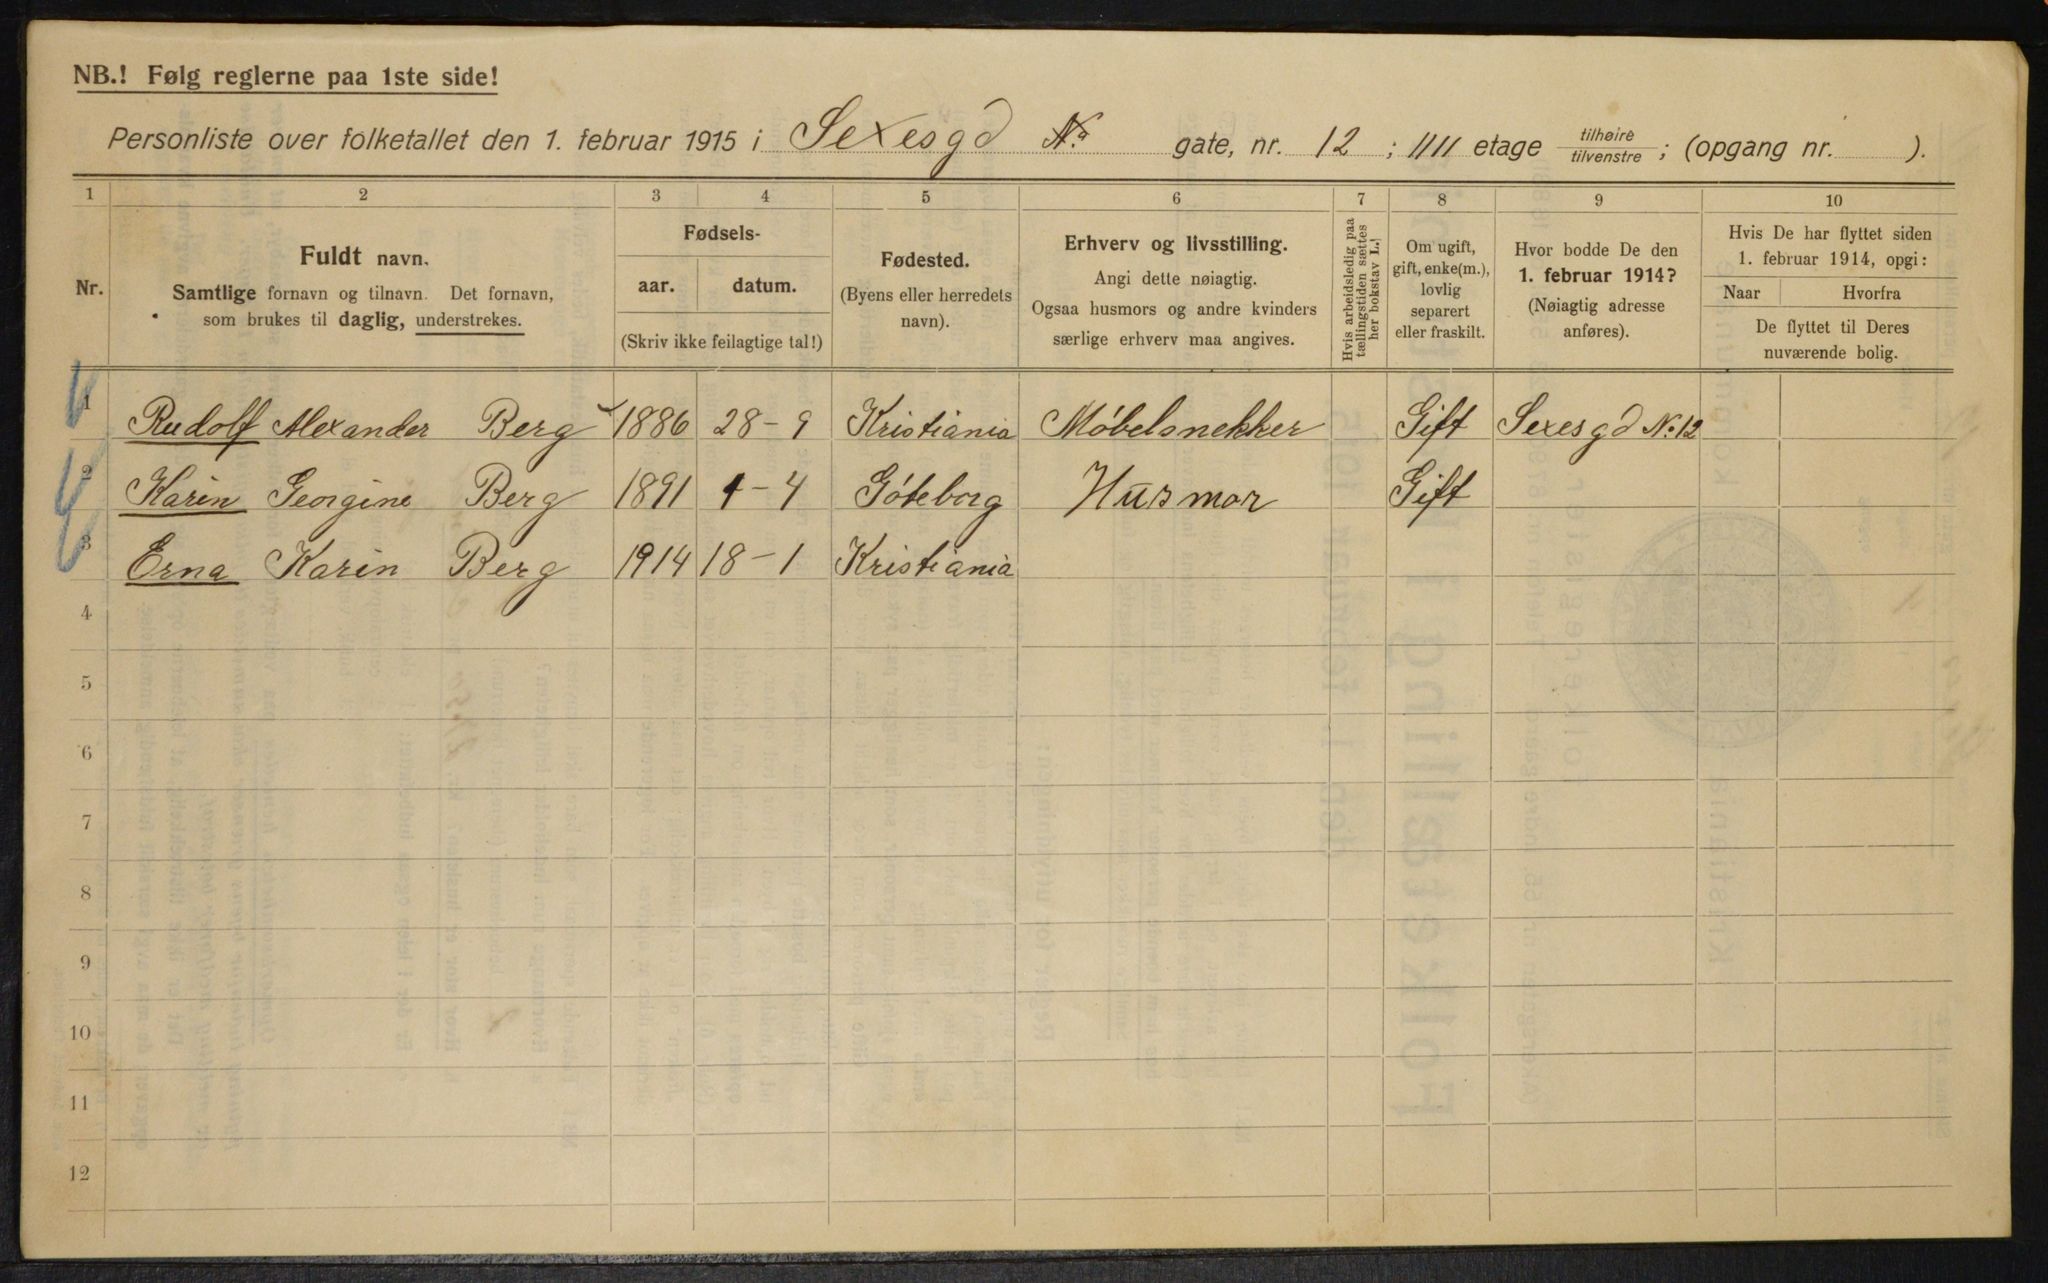 NB.! Følg reglerne paa 1ste side!
Personliste over folketallet den 1. februar 1915 i Sexesgd No gate, nr. 12 ; IIII etage tilhøire tilvenstre ; (opgang nr. ).
1 2 3 4 5 6 7 8 9 10
Nr.
Fuldt navn.
Samtlige fornavn og tilnavn. Det fornavn,
som brukes til daglig, understrekes.
Fødsels-
aar. datum.
(Skriv ikke feilagtige tal!)
Fødested.
(Byens eller herredets
navn).
Erhverv og livsstilling.
Angi dette nøiagtig.
Ogsaa husmors og andre kvinders
særlige erhverv maa angives.
Hvis arbeidsledig paa
tællingstiden sættes
her bokstav L.!
Om ugift,
gift, enke(m.),
lovlig
separert
eller fraskilt.
Hvor bodde De den
1. februar 1914?
(Nøiagtig adresse
anføres).
Hvis De har flyttet siden
1. februar 1914, opgi:
Naar Hvorfra
De flyttet til Deres
nuværende bolig.
1 Rudolf Alexander Berg 1886 28-9 Kristiania Møbelsnekker Gift Sexesgd No 12
2 Karin Georgine Berg 1891 1-4 Göteborg Husmor Gift
3 Erna Karin Berg 1914 18-1 Kristiania
4
5
6
7
8
9
10
11
12